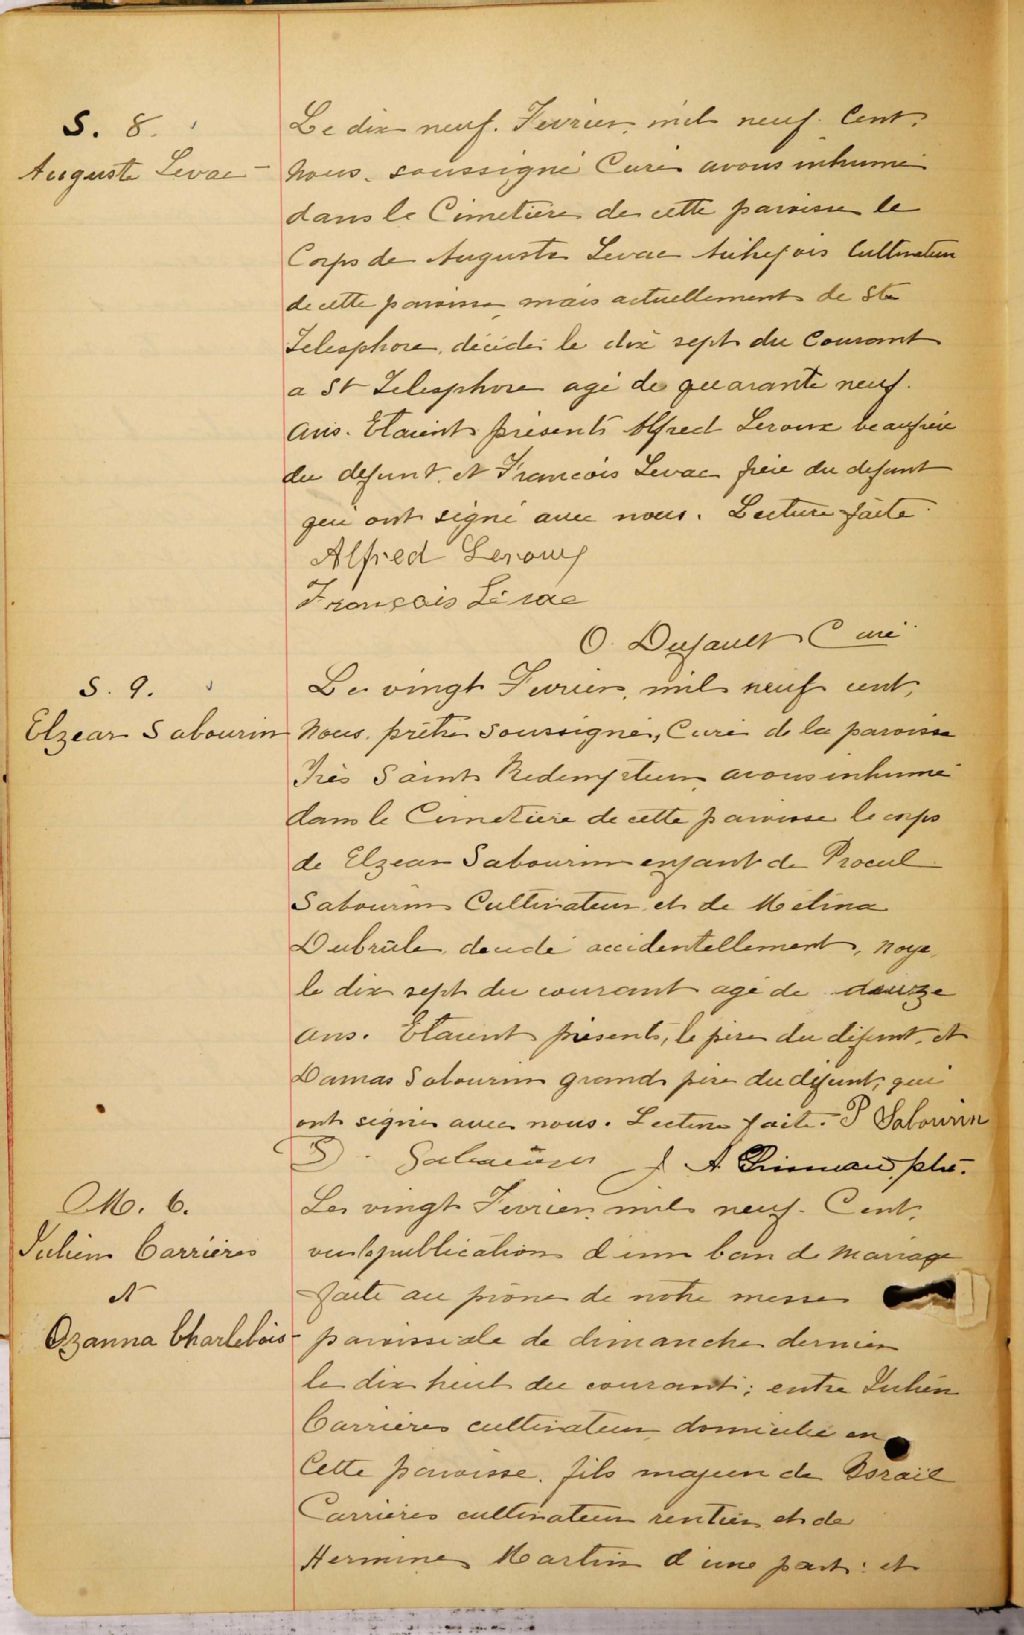 S. 8.
Auguste Levac
Le dix neuf. Fevrier, mil neuf Cent,
nous, soussigné Curé avons inhumé
dans le Cimetière de cette paroisse le
Corps de Auguste Levac Cultivateur
de cette paroisse, mais actuellement de Ste
Telesphore, décédé le dix sept du Courant
a St Telesphore agé de quarante neuf.
ans. Etaient présents Alfred Leroux beaufrère
du defunt, et François Levac frère du defunt
qui ont signé avec nous. Lecture faite.
Alfred Leroux
François Lévac
O. Dufault Curé
S. 9.
Elzear Sabourin
Le vingt Fevrier, mil neuf cent,
Nous, prêtre soussigné, Curé de la paroisse
Très Saint Redempteur, avons inhumé
dans le Cimetière de cette paroisse le corps
de Elzear Sabourin enfant de Procul
Sabourin Cultivateur et de Mélina
Dubrûle, décédé accidentellement, noyé,
le dix sept du courant agé de douze
ans. Etaient présents, le père du défunt, et
Damas Sabourin grand père du défunt, qui
ont signé avec nous. Lecture faite. P Sabourin
D. Sabourin J. A. Primeau, ptre.
M. 6.
Julien Carrières
et
Ozanna Charlebois
Le vingt Fevrier, mil neuf Cent,
vu la publication d'un ban de mariage
faite au prône de notre messe
paroissiale de dimanche dernier
le dix huit du courant; entre Julien
Carrières cultivateur domicilié en
Cette paroisse, fils majeur de Israël
Carrières cultivateur rentier et de
Hermine Martin d'une part: et